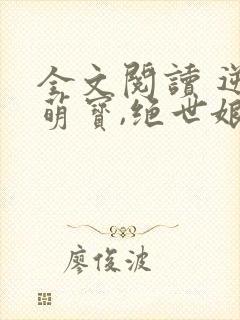 全文閱讀 逆
萌寶,绝世娘
廖俊波